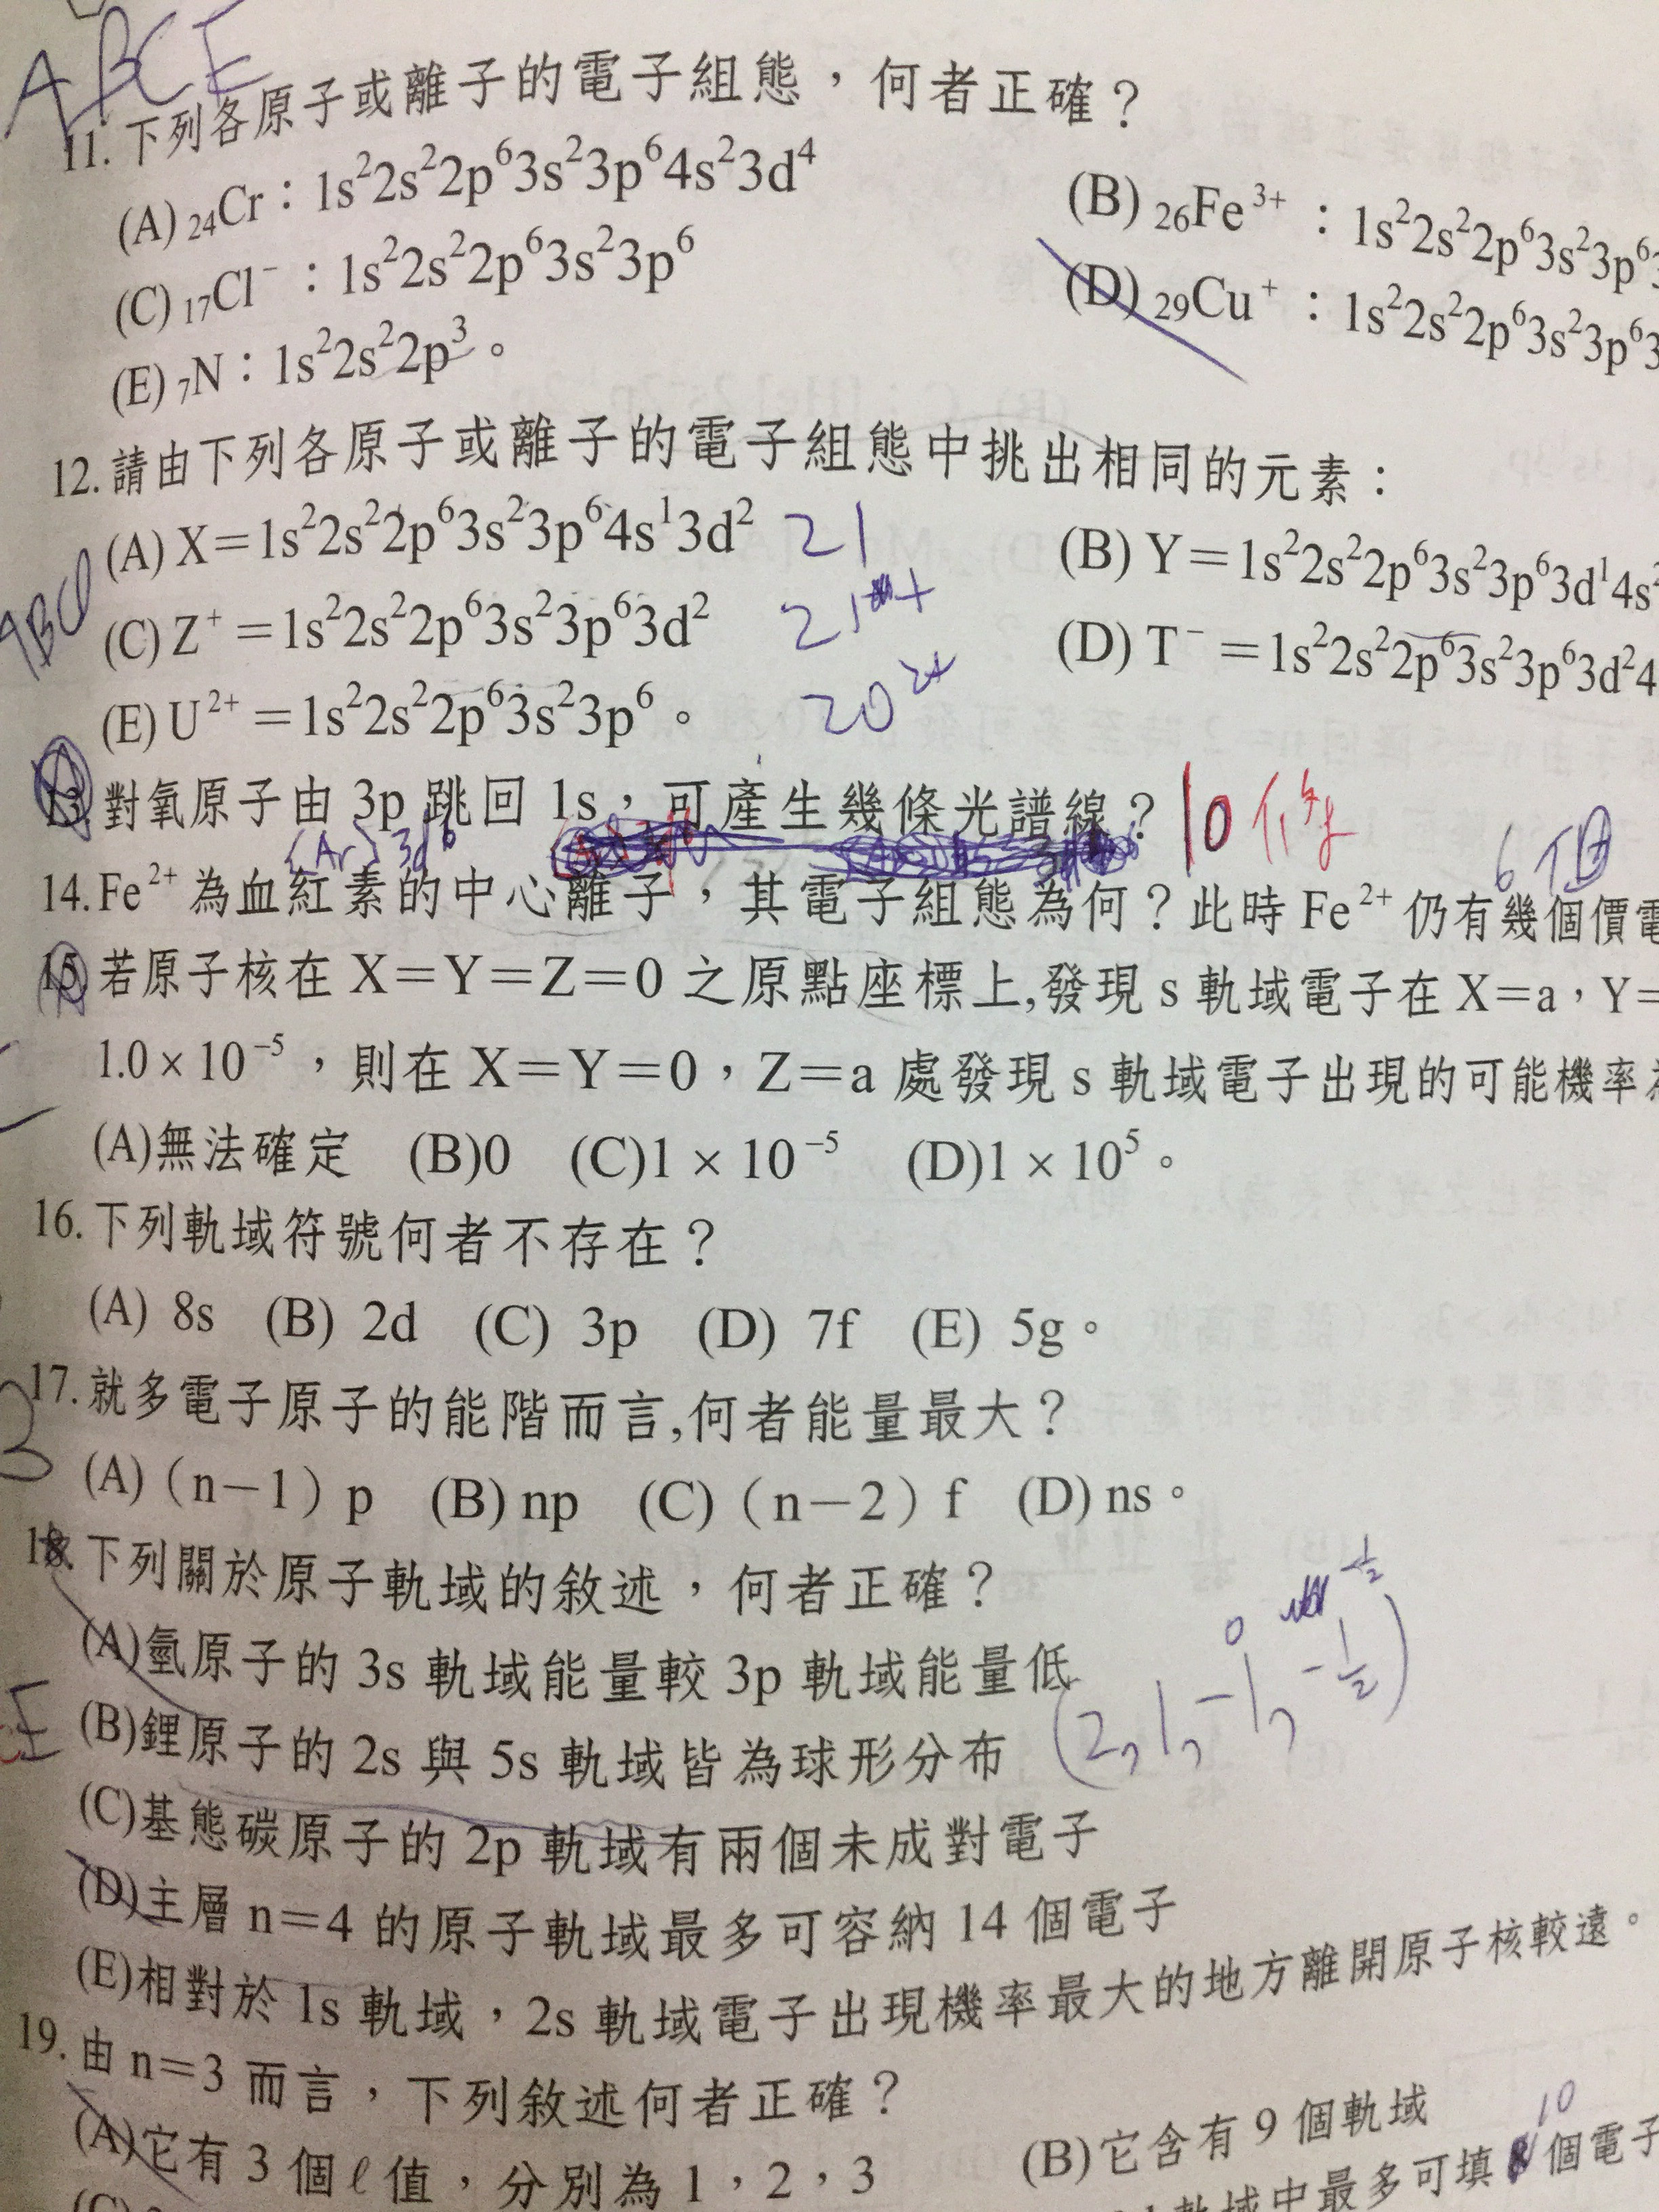 ABCE
11. 下列各原子或離子的電子組態，何者正確？
(A) ₂₄Cr：1s²2s²2p⁶3s²3p⁶4s²3d⁴ (B) ₂₆Fe³⁺：1s²2s²2p⁶3s²3p⁶
(C) ₁₇Cl⁻：1s²2s²2p⁶3s²3p⁶ (D) ₂₉Cu⁺：1s²2s²2p⁶3s²3p⁶3
(E) ₇N：1s²2s²2p³。
12. 請由下列各原子或離子的電子組態中挑出相同的元素：
(A) X＝1s²2s²2p⁶3s²3p⁶4s¹3d² 21 (B) Y＝1s²2s²2p⁶3s²3p⁶3d¹4s²
ABC
(C) Z⁺＝1s²2s²2p⁶3s²3p⁶3d² 21⁺ (D) T⁻＝1s²2s²2p⁶3s²3p⁶3d²4
(E) U²⁺＝1s²2s²2p⁶3s²3p⁶。 20²⁺
13. 對氧原子由 3p 跳回 1s，可產生幾條光譜線？ 10條
[Ar] 3d⁶ 6個
14. Fe²⁺ 為血紅素的中心離子，其電子組態為何？此時 Fe²⁺ 仍有幾個價電
15. 若原子核在 X＝Y＝Z＝0 之原點座標上,發現 s 軌域電子在 X＝a，Y＝
1.0 × 10⁻⁵，則在 X＝Y＝0，Z＝a 處發現 s 軌域電子出現的可能機率為
(A)無法確定 (B)0 (C)1 × 10⁻⁵ (D)1 × 10⁵。
16. 下列軌域符號何者不存在？
(A) 8s (B) 2d (C) 3p (D) 7f (E) 5g。
17. 就多電子原子的能階而言,何者能量最大？
(A)（n－1）p (B) np (C)（n－2）f (D) ns。
18. 下列關於原子軌域的敘述，何者正確？
(A)氫原子的 3s 軌域能量較 3p 軌域能量低
0 -½
(2, 1, -1, -½)
(B)鋰原子的 2s 與 5s 軌域皆為球形分布
(C)基態碳原子的 2p 軌域有兩個未成對電子
(D)主層 n＝4 的原子軌域最多可容納 14 個電子
(E)相對於 1s 軌域，2s 軌域電子出現機率最大的地方離開原子核較遠。
19. 由 n＝3 而言，下列敘述何者正確？
(A)它有 3 個 ℓ 值，分別為 1，2，3 (B)它含有 9 個軌域
10
軌域中最多可填 個電子